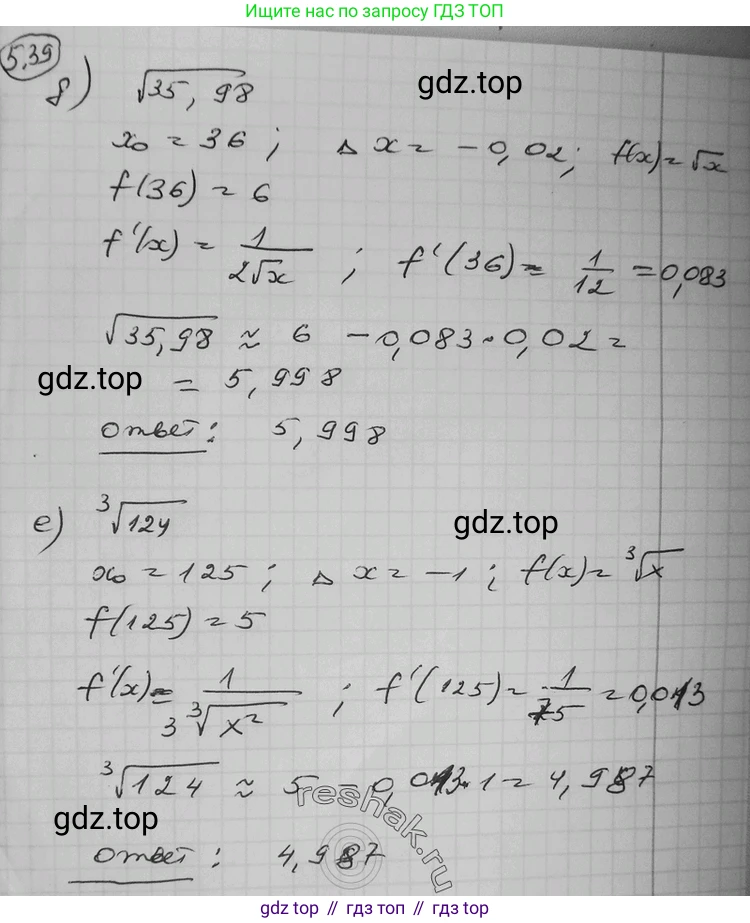 Ищите нас по запросу ГДЗ ТОП
5.39
д) √35,98
gdz.top
x₀ = 36 ; Δx = -0,02; f(x) = √x
f(36) = 6
f'(x) = 1/(2√x) ; f'(36) = 1/12 = 0,083
√35,98 ≈ 6 - 0,083·0,02 =
gdz.top
= 5,998
ответ: 5,998
е) ³√124
gdz.top
x₀ = 125 ; Δx = -1 ; f(x) = ³√x
f(125) = 5
f'(x) = 1/(3 ³√x²) ; f'(125) = 1/75 = 0,013
³√124 ≈ 5 - 0,013·1 = 4,987
reshak.ru
gdz.top
ответ: 4,987
gdz top // гдз топ // gdz.top